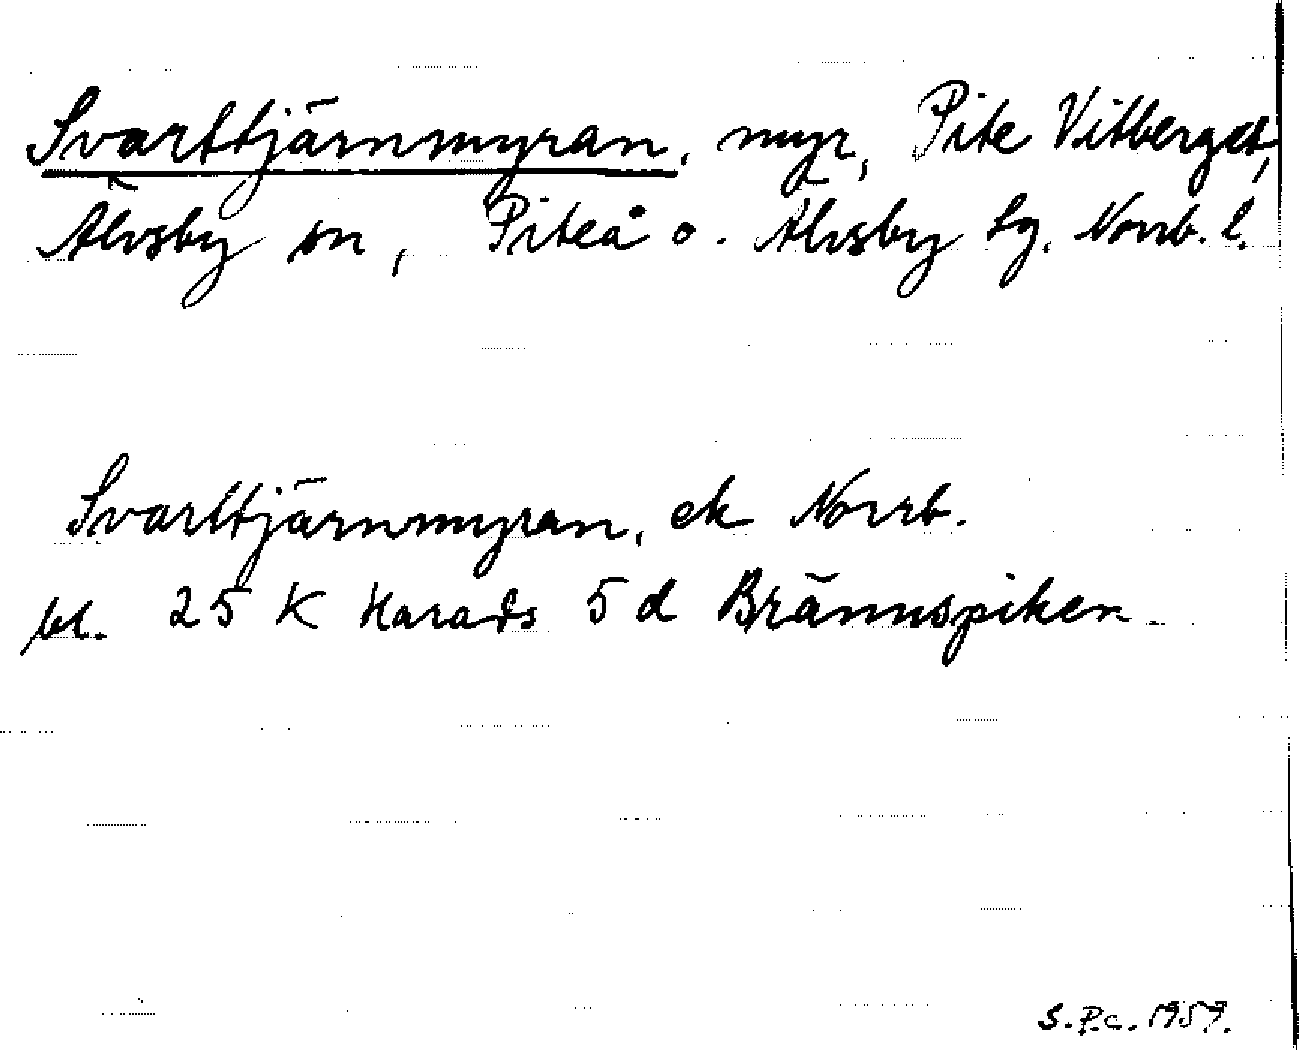 Svarttjärnmyran, myr, Pite Vitberget,
Älvsby sn, Piteå o. Älvsby tg. Norrb. l.
Svarttjärnmyran, ek Norrb.
bl. 25 K Harads 5 d Brännspiken
S.P.c. 1959.